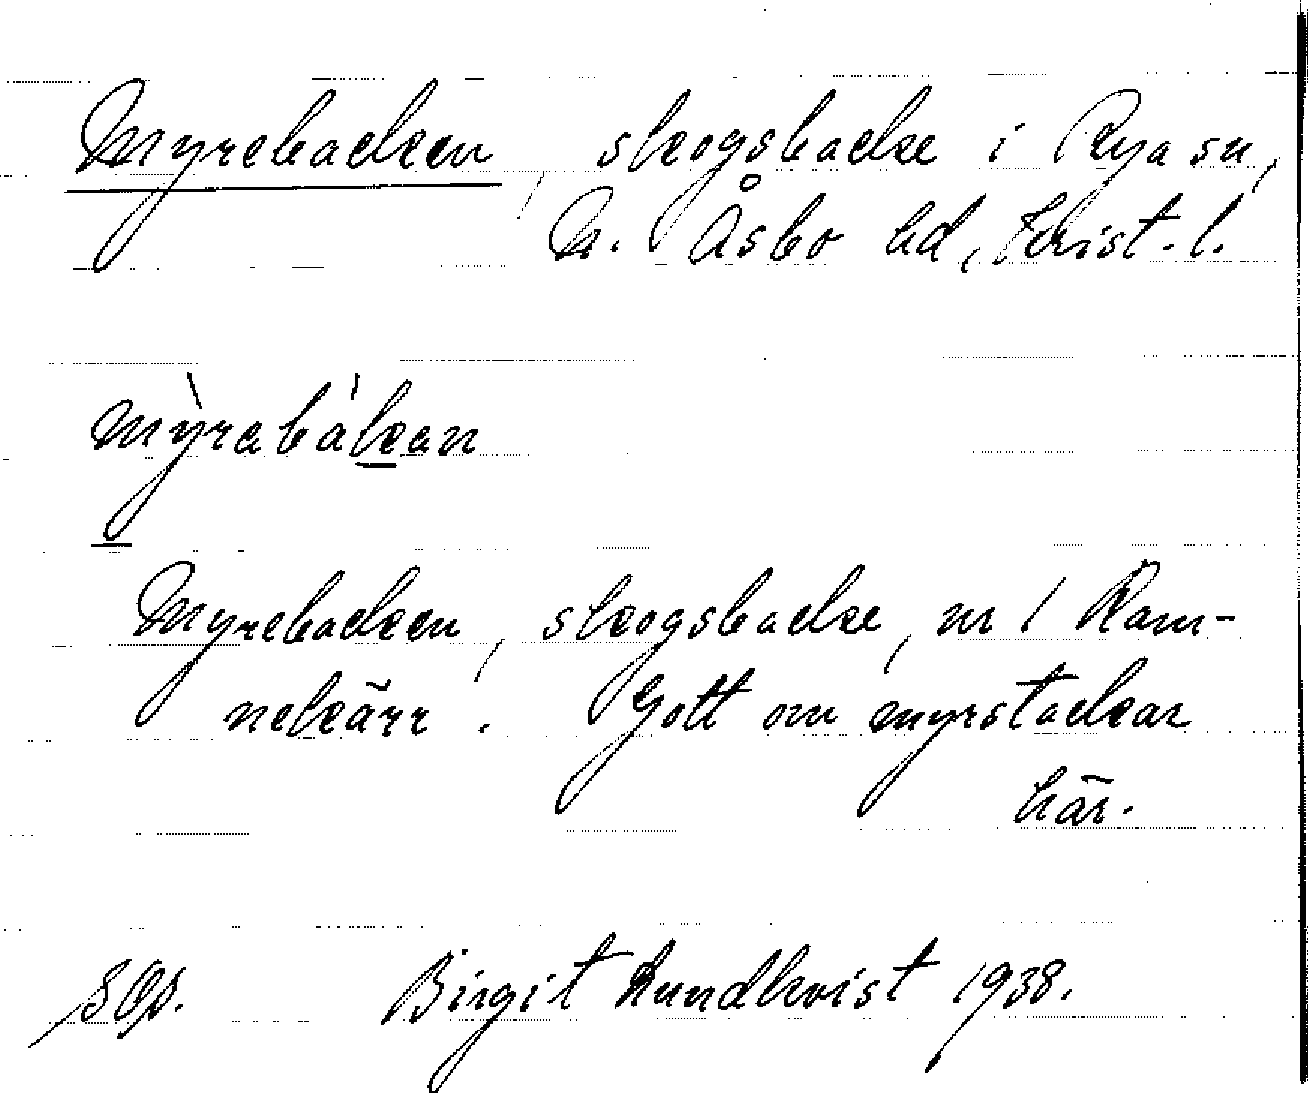 Myrebacken, skogsbacke i Rya sn,
N. Åsbo hd, Krist. l.
mỳrabákan
Myrebacken, skogsbacke, nr 1 Ram-
nekärr. Gott om myrstackar
här.
Birgit Lundkvist 1938.